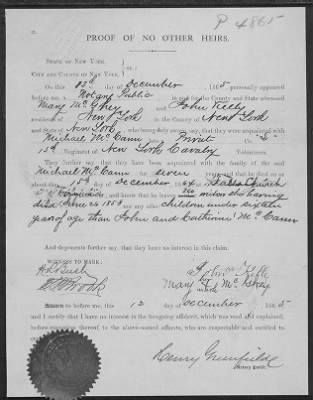 P 4865
PROOF OF NO OTHER HEIRS.
STATE OF NEW YORK,
CITY AND COUNTY OF NEW YORK, } ss:
On this 13th day of December 1865, personally appeared
before me, a Notary Public in and for the County and State aforesaid
Mary McGhey and John Kelly
residents of New York in the County of New York
and State of New York who being duly sworn, say that they were acquainted with
Michael McCann Private Co.
15th Regiment of New York Cavalry Volunteers.
They further say that they have been acquainted with the family of the said
Michael McCann for seven years and that he died on or
about the 15th day of December 1864 at
Virginia and know that he leaving no widow she having
died June 26 1858 nor any other children under sixteen
years of age than John and Catherine McCann
And deponents further say, that they are no interest in this claim.
WITNESS TO MARK.
John Kelly
Mary McGhey
mark
Sworn to before me, this 13 day of December 1865
and I certify that I have no interest in the foregoing affidavit, which was read and explained,
before execution thereof, to the above-named affiants, who are respectable and entitled to
Henry Greenfield
Notary Public.